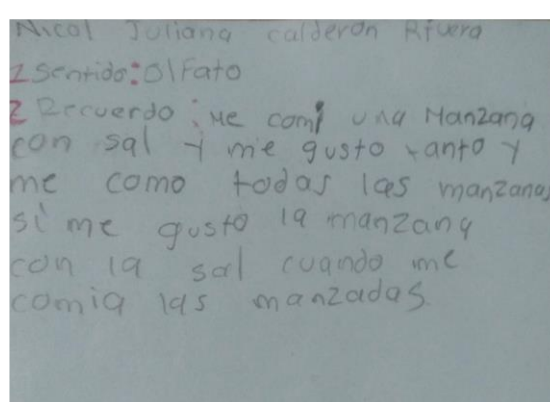 Nicol Juliana calderon Rivera
1 Sentido: Olfato
2 Recuerdo: Me comi una Manzana
con sal y me gusto tanto y
me como todas las manzanas
si me gusto la manzana
con la sal cuando me
comia las manzadas.